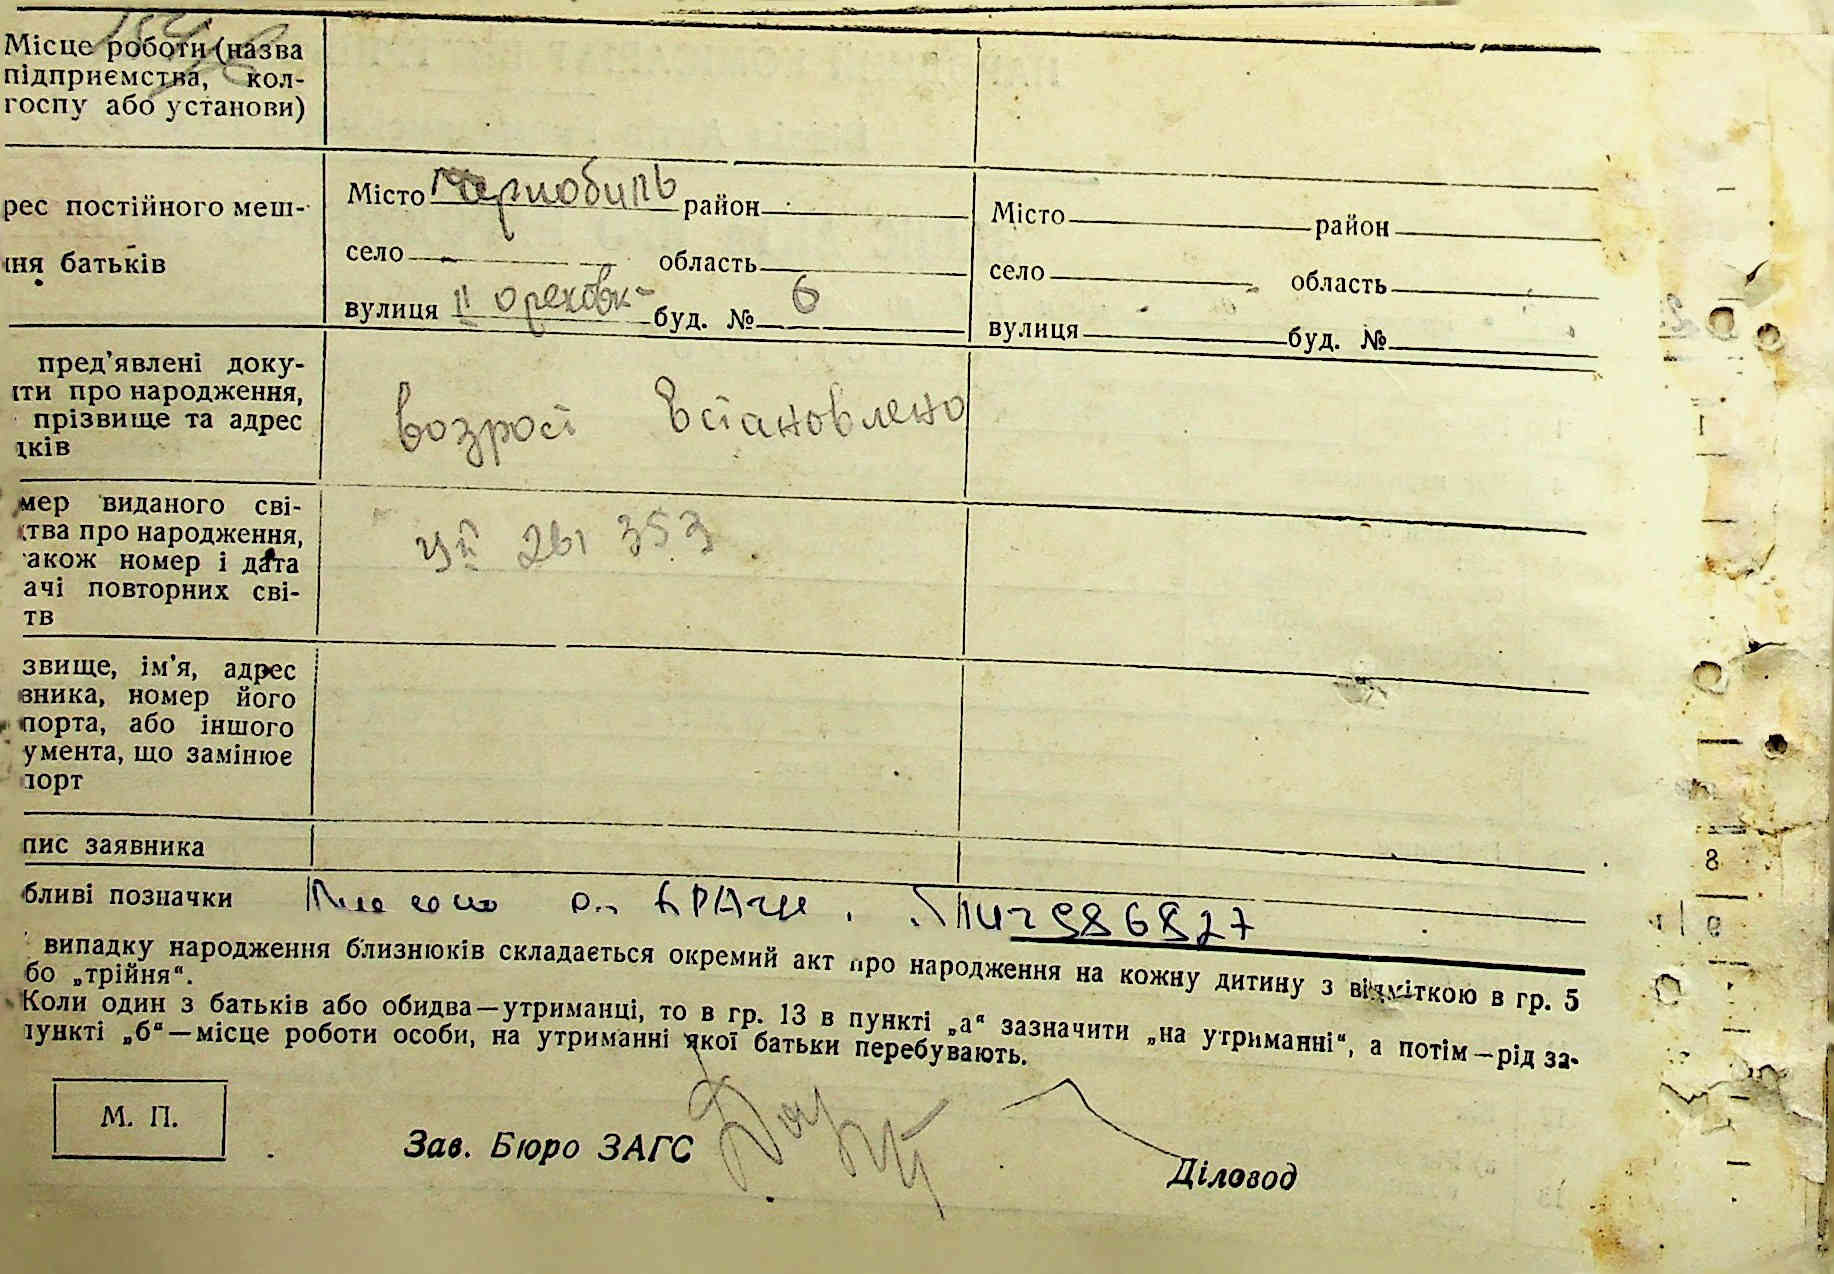 Місце роботи (назва
підприємства, кол-
госпу або установи)
рес постійного меш-
ня батьків
Місто Чернобиль район
село область
вулиця II Ореховк- буд. № 6
Місто район
село область
вулиця буд. №
пред'явлені доку-
ти про народження,
прізвище та адрес
ків
возрост встановлено
мер виданого сві-
тва про народження,
акож номер і дата
ачі повторних сві-
тв
261 353
звище, ім'я, адрес
вника, номер його
порта, або іншого
умента, що замінює
порт
пис заявника
бливі позначки
випадку народження близнюків складається окремий акт про народження на кожну дитину з відміткою в гр. 5
бо „трійня“.
Коли один з батьків або обидва—утриманці, то в гр. 13 в пункті „а“ зазначити „на утриманні“, а потім—рід за-
пункті „б“—місце роботи особи, на утриманні якої батьки перебувають.
М. П.
Зав. Бюро ЗАГС
Діловод